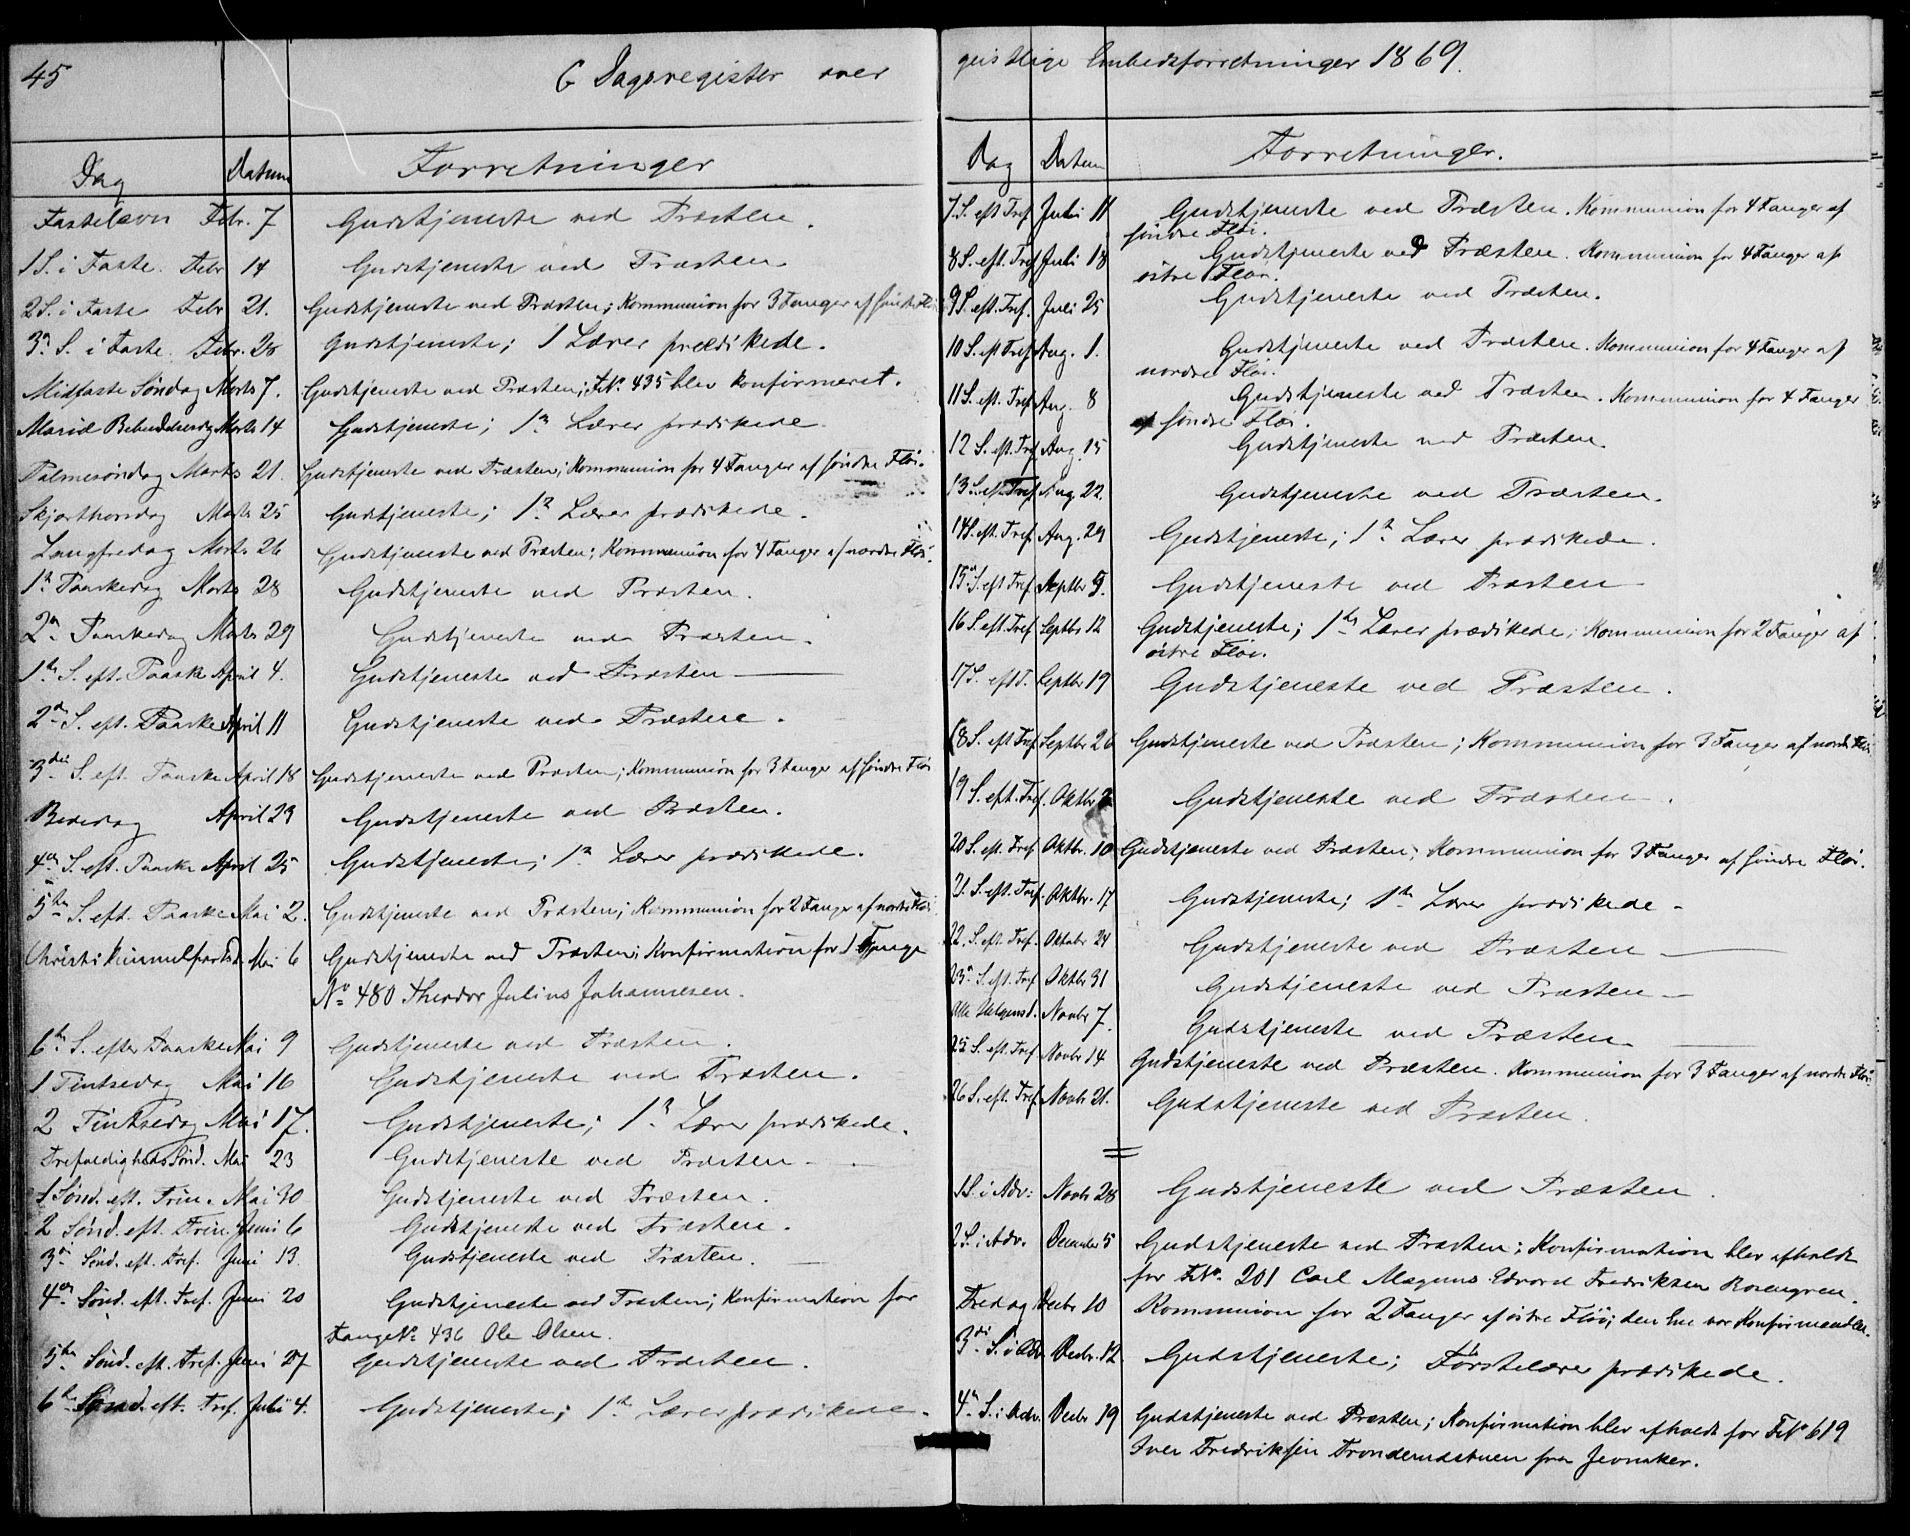 45
G Dagsregister over
Dag Datum Forretninger
Fastelavn Febr. 7 Gudstjeneste ved Præsten.
1 S. i Faste. Febr 14 Gudstjeneste ved Præsten
2 S. i Faste Febr 21. Gudstjeneste ved Præsten; Kommunion for 3 Fanger af søndre Fløi
3die S. i Faste. Febr. 28 Gudstjeneste; 1 Lærer prædikede.
Midfaste Søndag Marts 7. Gudstjeneste ved Præsten; F.No. 435 blev konfirmeret.
Mariæ Bebudelsesdag Marts 14 Gudstjeneste; 1ste Lærer prædikede
Palmesøndag Marts 21. Gudstjeneste ved Præsten; Kommunion for 4 Fanger af søndre Fløi.
Skjærthorsdag Marts 25 Gudstjeneste; 1ste Lærer prædikede.
Langfredag Marts 26 Gudstjeneste ved Præsten; Kommunion for 4 Fanger af nordre Fløi.
1ste Paaskedag Marts 28 Gudstjeneste ved Præsten.
2den Paaskedag Marts 29 Gudstjeneste ved Præsten.
1ste S. eft. Paaske April 4. Gudstjeneste ved Præsten
2den S. eft. Paaske April 11 Gudstjeneste ved Præsten.
3die S. eft. Paaske April 18 Gudstjeneste ved Præsten; Kommunion for 3 Fanger af søndre Fløi
Bededag April 23 Gudstjeneste ved Præsten.
4de S. eft. Paaske April 25 Gudstjeneste; 1ste Lærer prædikede.
5te S. eft. Paaske Mai 2. Gudstjeneste ved Præsten; Kommunion for 2 Fanger af nordre Fløi
Christi himmelfartsd. Mai 6 Gudstjeneste ved Præsten; Konfirmation for 1 Fange
No. 480 Theodor Julius Johannesen.
6te S. efter Paaske Mai 9 Gudstjeneste ved Præsten.
1 Pintsedag Mai 16 Gudstjeneste ved Præsten.
2 Pintsedag Mai 17. Gudstjeneste; 1ste Lærer prædikede.
Trefoldigheds Sønd. Mai 23 Gudstjeneste ved Præsten
1 Sønd. eft. Trin. Mai 30 Gudstjeneste ved Præsten.
2 Sønd. eft. Trin. Juni 6 Gudstjeneste ved Præsten.
3die Sønd. eft. Tref. Juni 13 Gudstjeneste ved Præsten.
4de Sønd. eft. Tref. Juni 20 Gudstjeneste ved Præsten; Konfirmation for
Fange No. 436 Ole Olsen.
5te Sønd. eft. Tref. Juni 27 Gudstjeneste ved Præsten.
6te Sønd. eft. Tref. Juli 4. Gudstjeneste; 1ste Lærer prædikede.
geistlige Embedsforretninger 1869.
Dag Datum Forretninger.
7. S. eft Tref Juli 11 Gudstjeneste ved Præsten. Kommunion for 4 Fanger af
søndre Fløi.
8 S. eft. Tref Juli 18 Gudstjeneste ved Præsten. Kommunion for 4 Fanger af
østre Fløi.
9 S. eft. Tref. Juli 25 Gudstjeneste ved Præsten.
10 S. eft Tref Aug. 1. Gudstjeneste ved Præsten. Kommunion for 4 Fanger af
nordre Fløi.
11 S. eft. Tref Aug. 8 Gudstjeneste ved Præsten. Kommunion for 4 Fanger
af søndre Fløi.
12 S. eft. Tref Aug. 15 Gudstjeneste ved Præsten.
13 S. eft. Tref Aug 22. Gudstjeneste ved Præsten.
14 S. eft. Tref Aug. 29 Gudstjeneste; 1ste Lærer prædikede.
15 S. eft Tref Septbr 5. Gudstjeneste ved Præsten
16 S. eft. Tref Septbr 12 Gudstjeneste; 1ste Lærer prædikede; Kommunion for 2 Fanger af
østre Fløi.
17 S. eft T. Septbr 19 Gudstjeneste ved Præsten.
18 S. eft Tref Septbr 26 Gudstjeneste ved Præsten; Kommunion for 3 Fanger af nordre Fløi
19 S. eft. Tref. Oktbr Gudstjeneste ved Præsten.
20 S. eft. Tref Oktbr. 10 Gudstjeneste ved Præsten; Kommunion for 3 Fanger af søndre Fløi.
21. S. eft. Tref. Oktbr. 17 Gudstjeneste; 1ste Lærer prædikede
22. S. eft. Tref. Oktobr 24 Gudstjeneste ved Præsten
23de S. eft. Tref Oktbr 31 Gudstjeneste ved Præsten
Alle Helgensd. Novbr 7. Gudstjeneste ved Præsten.
25 S. eft. Tref Novbr 14 Gudstjeneste ved Præsten. Kommunion for 3 Fanger af nordre Fløi.
26 S. eft. Tref. Novbr 21. Gudstjeneste ved Præsten.
1 S. i Adv: Novbr 28 Gudstjeneste ved Præsten.
2 S. i Adv. December 5 Gudstjeneste ved Præsten; Konfirmation blev afholdt
for F.No. 201 Carl Magnus Edvard Fredriksen Rosengren.
Fredag Decbr 10 Kommunion for 2 Fanger af østre Fløi; den Ene var Konfirmanden.
3die S. i Adv. Decbr. 12 Gudstjeneste; Førstelærer prædikede.
4de S. i Adv. Decbr 19 Gudstjeneste ved Præsten; Konfirmation blev afholdt for F.No 619
Iver Fredriksen Tronderudstuen fra Jevnaker.